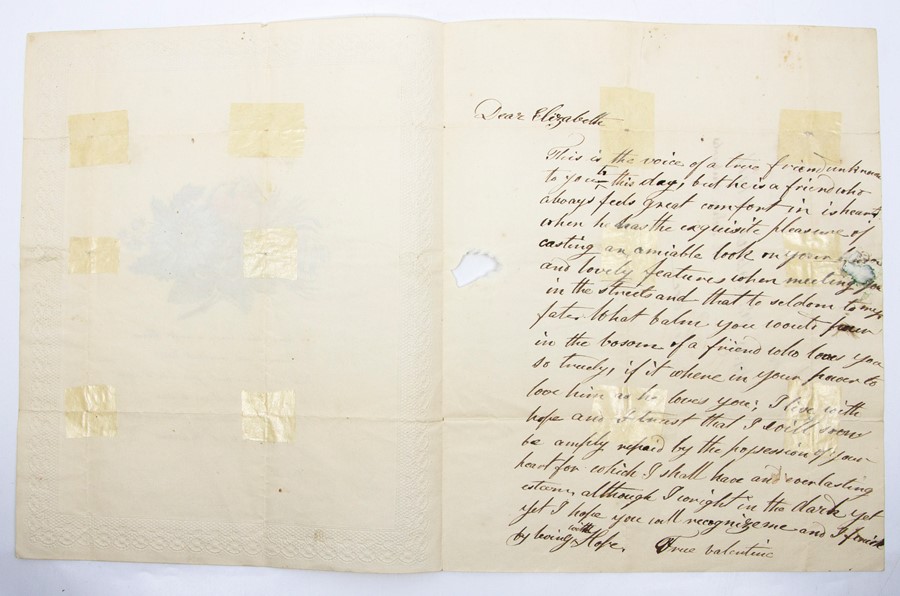 Dear Elizabeth
This is the voice of a true friend unknown
to you to this day, but he is a friend who
always feels great comfort in is heart
when he has the exquisite pleasure of
casting an amiable look on your
and lovely features when meeting you
in the streets and that to seldom to my
fate. What balm you would pour
in the bosom of a friend who loves you
so truely, if it where in your power to
love him as he loves you; I live with
hope and I trust that I will soon
be amply repaid by the possession of your
heart for which I shall have and everlasting
esteem, although I wright in the dark yet
yet I hope you will recognize me and I finish
by living with Hope. True valentine